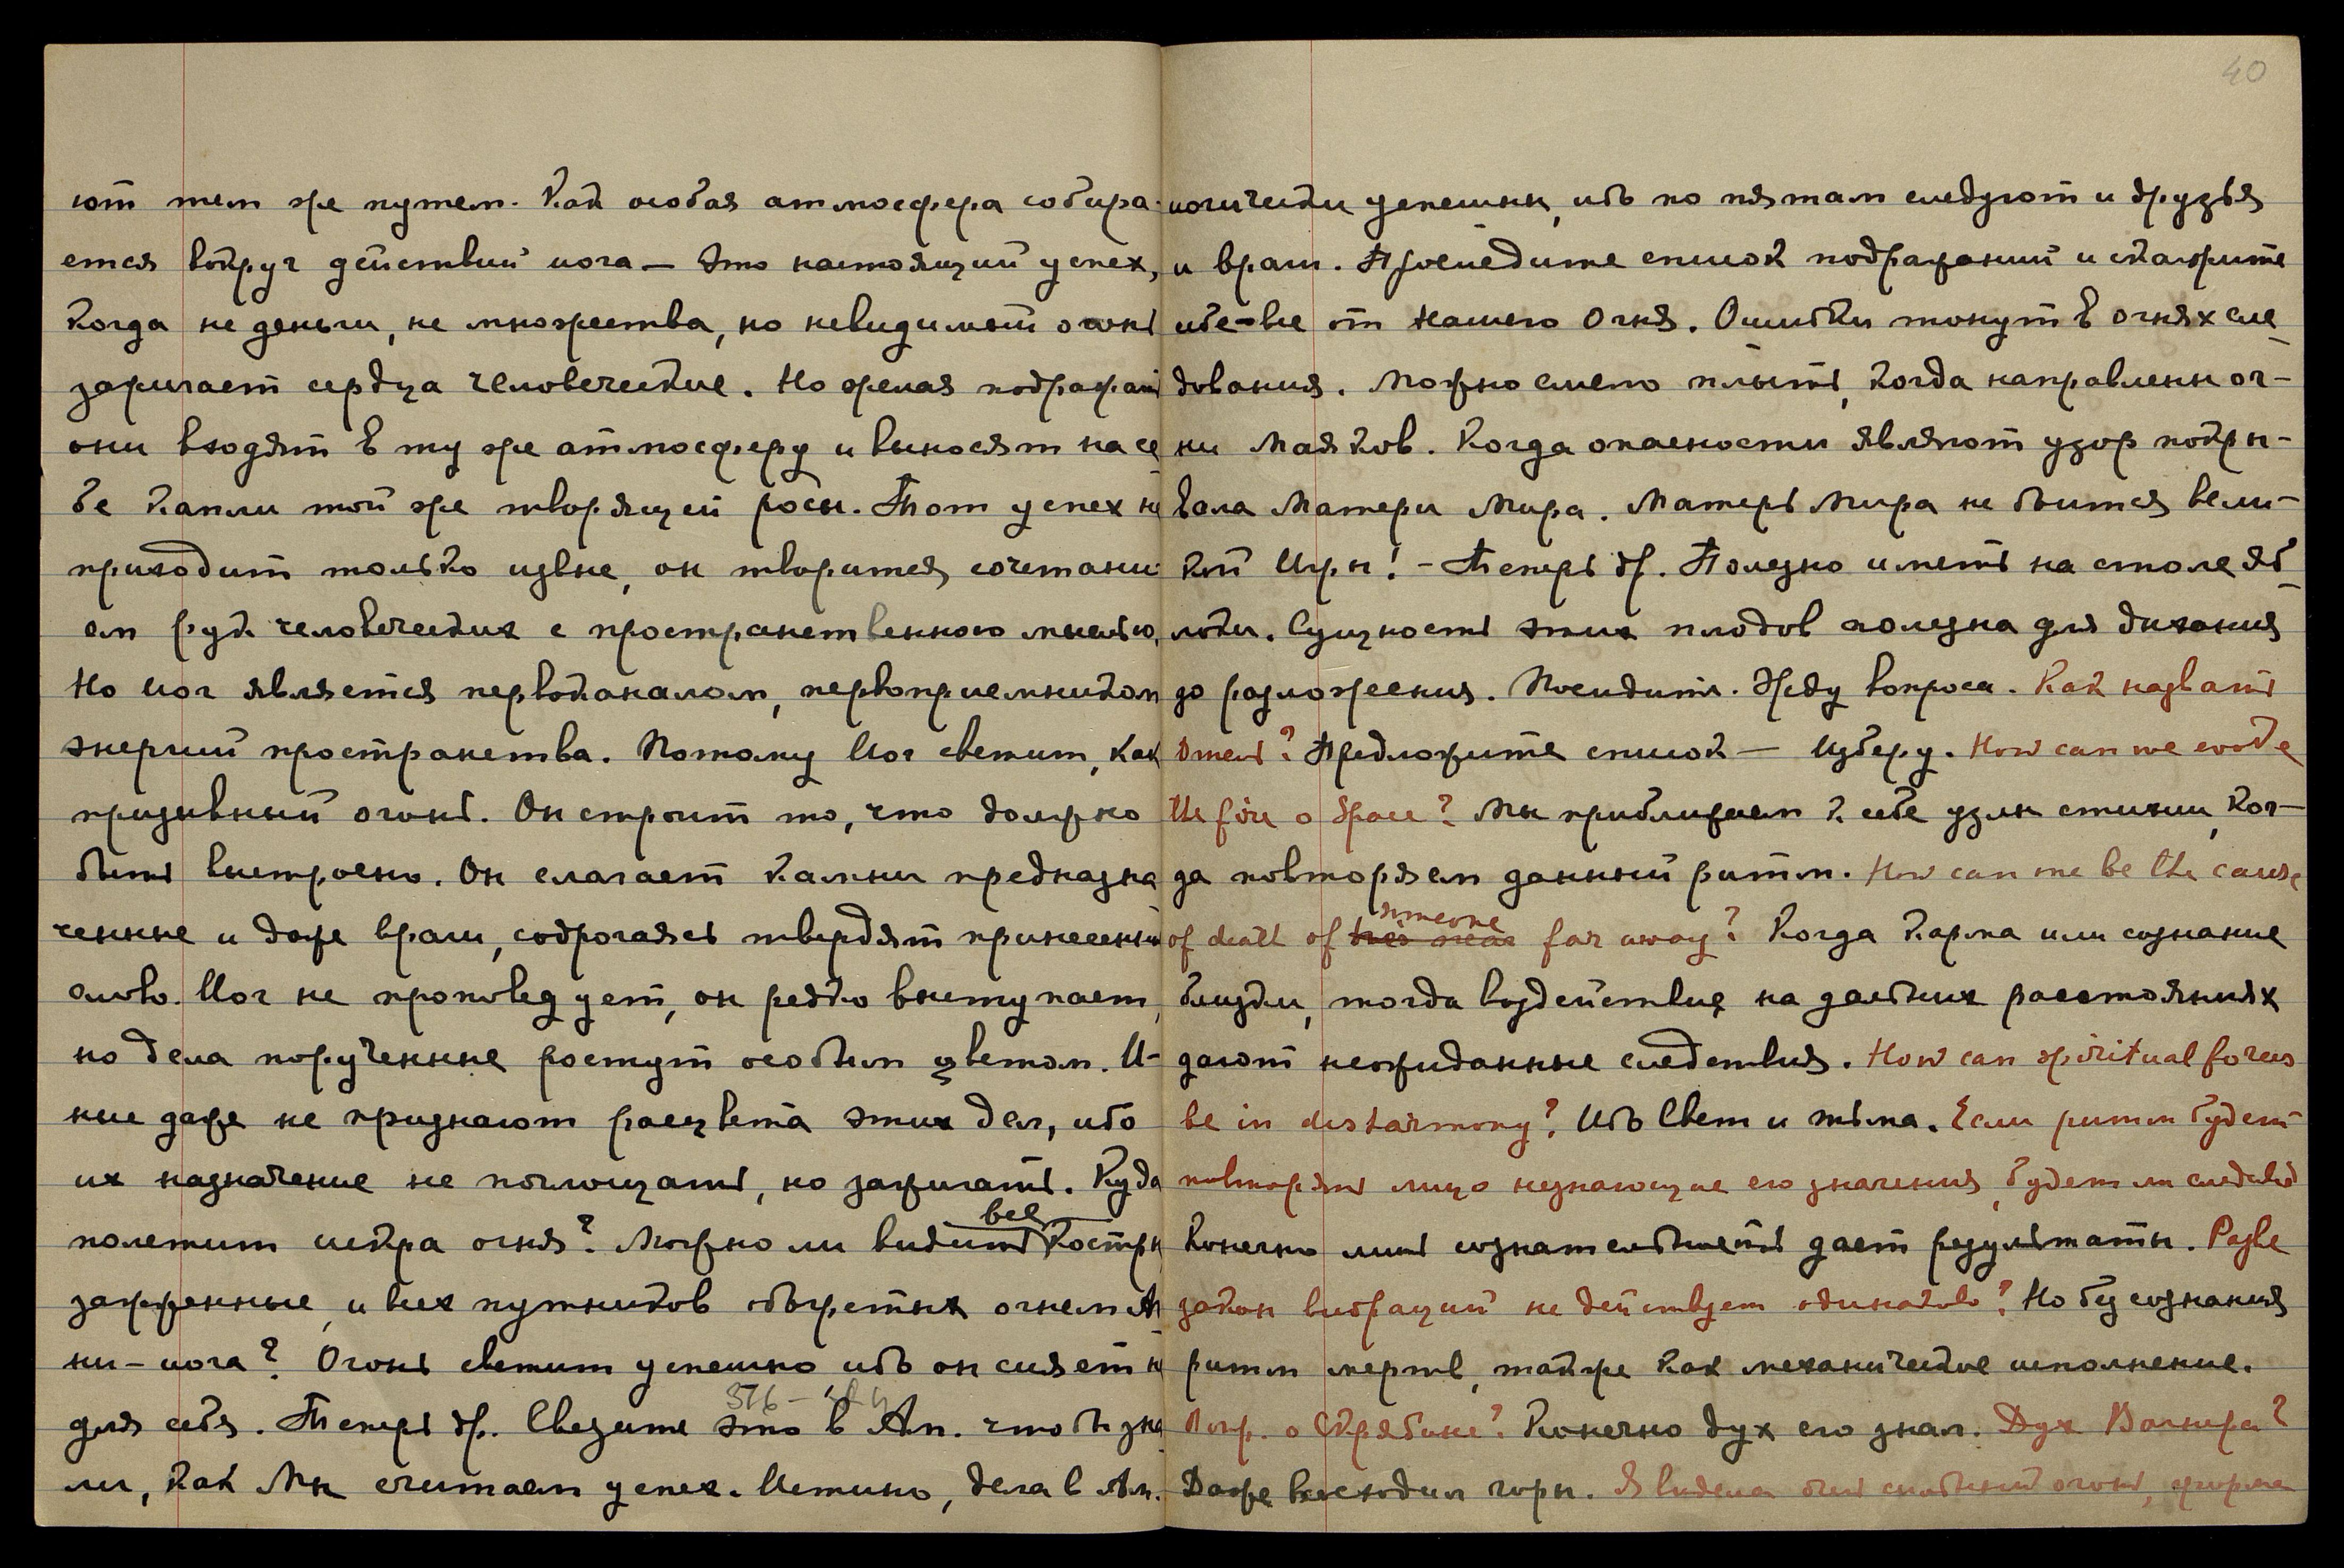 ют тем же путем. Как особая атмосфера собира-
ется вокруг действий иога — это настоящий успех,
когда не деньги, не множества, но невидимый огонь
зажигает сердца человеческие. Но желая подражать
они входят в ту же атмосферу и выносят на се
бе капли той же творящей росы. Тот успех не
приходит только извне, он творится сочетани
ем рук человеческих с пространственною мыслью.
Но Иог является первоканалом, первоприемником
энергий пространства. Потому Иог светит, как
призывный огонь. Он строит то, что должно
быть выстроено. Он слагает камни предназна
ченные и даже враги, содрогаясь твердят принесенный
слово. Иог не проповедует, он редко выступает,
но дела порученные ростут особым цветом. И-
ные даже не признают расцвета этих дел, ибо
их назначение не поглощать, но зажигать. Куда
все
полетит искра огня? Можно ли видеть костры
зажженные, и всех путников обогретых огнем Аг
ни-иога? Огонь светит успешно, ибо он сияет не
376-
для себя. Теперь др. Свезите это в Ам. чтобы зна
ли, как Мы считаем успех. Истинно, дела в Ам.
40
логически успешны, ибо по пятам следуют и друзья
и враги. Проследите список подражаний и скажите
себе - все от Нашего Огня. Ошибки тонут в огнях сле
дования. Можно смело плыть, когда направлены ог-
ни Маяков. Когда опасности являют узор покры-
вала Матери Мира. Матерь Мира не боится вели-
кой Игры! - Теперь др. Полезно иметь на столе яб
локи. Сущность этих плодов полезна для дыхания
до разложения. Посидим. Жду вопроса. Как назвать
Отдел? Предложите список — Изберу. How can we evoke
the fire o Space? Мы приближаем к себе узлы стихии, ког-
да повторяем данный ритм. How can me be the cause
someone
of death of far away? Когда Карма или сознание
близки, тогда воздействия на дальних расстояниях
дают неожиданные следствия. How can spiritual forces
be in disharmony? Ибо Свет и тьма. Если ритм будет
повторять лицо незнающие его значения, будет ли следствие
Конечно лишь сознательность дает результаты. Разве
закон вибраций не действует одинаково? Но без сознания
ритм мертв, также как механическое исполнение.
Вопр. о Скрябине? Конечно дух его знал. Дух Вагнера?
Даже восходил горы. Я видела очень сильный огонь, форма